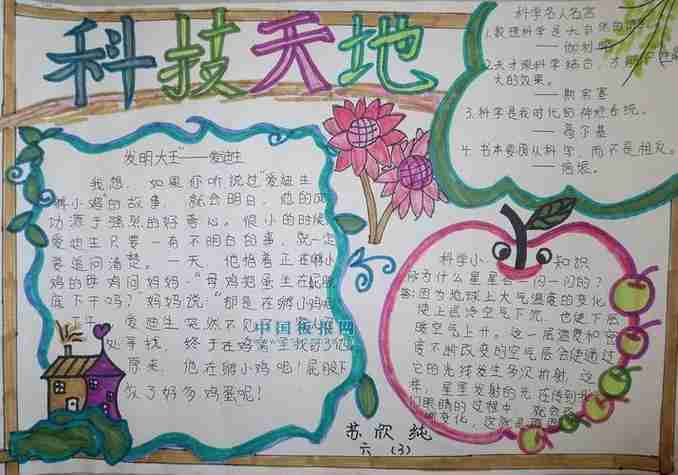 科技天地
科学名人名言
1.数理科学是大自然的语言
——伽利略
2.天才和科学结合，才能
大的效果。
——斯宾塞
3.科学是我时代的神经系统。
——高尔基
4.书本要图从科学，而不是祖反。
——培根
发明大王——爱迪生
我想，如果你听说过爱迪生
孵小鸡的故事，就会明白，他的成
功源于强烈的好奇心。很小的时候，
爱迪生只要一有不明白的事，就一定
要追问清楚。一天，他指着正在孵小
鸡的母鸡问妈妈："母鸡把蛋生在屁股
底下干吗？妈妈说"那是在孵小鸡
下午，爱迪生突然不见
处寻找，终于在鸡窝里找到了他
原来，他在孵小鸡呢！屁股下
放了好多鸡蛋呢！
中国板报网
科学小知识
你为什么星星会一闪一闪的？
答：因为地球上大气温度的变化
使上层冷空气下沉，也使下层
暖空气上升。这一层温度和密
度不断改变的空气层会使通过
它的光线发生多次折射，这
样，星星发射的光在传到我
们眼睛的过程中，就会
变化，这就是
苏欣纯
六（3）